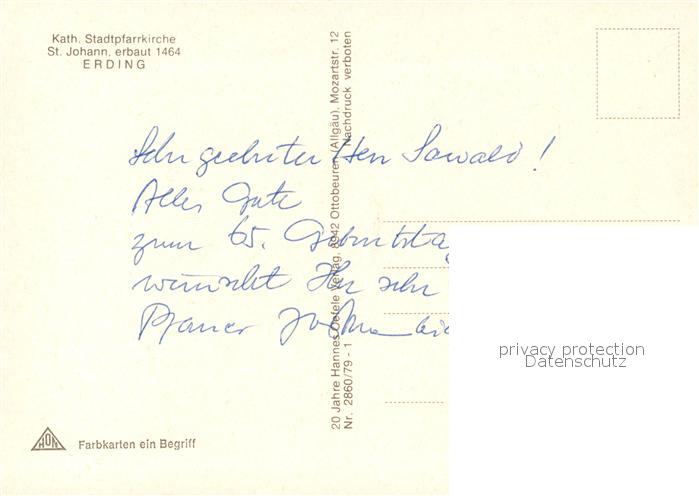 Kath. Stadtpfarrkirche
St. Johann, erbaut 1464
ERDING
Sehr geehrter Herr Sawald!
Alles Gute
zum 65. Geburtstag
wünscht Ihr sehr
Pfarrer
20 Jahre Hannes Oefele Verlag, 8942 Ottobeuren (Allgäu), Mozartstr. 12
Nr. 2860/79 - 1 Nachdruck verboten
privacy protection
Datenschutz
HON
Farbkarten ein Begriff